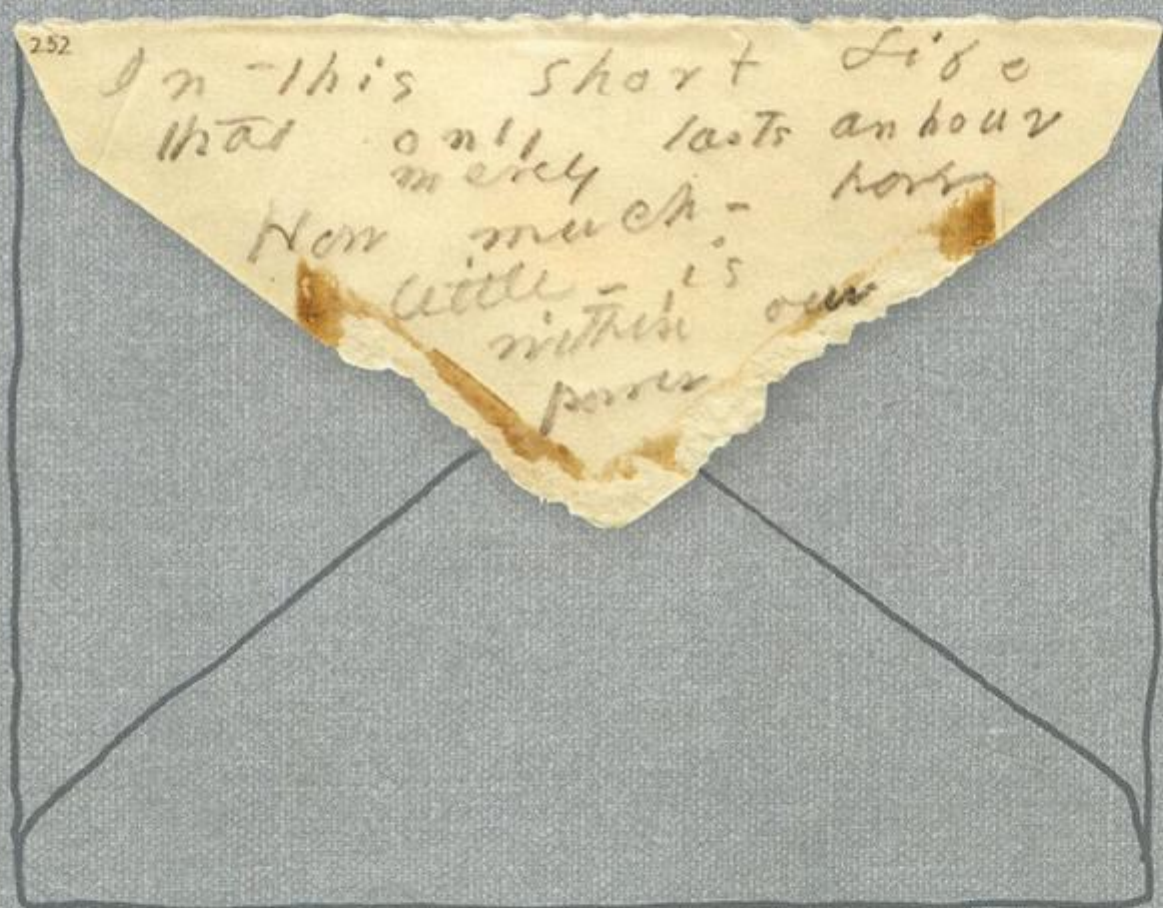 252
In this short Life
that only lasts an hour
merely
How much - how
little - is
within our
power